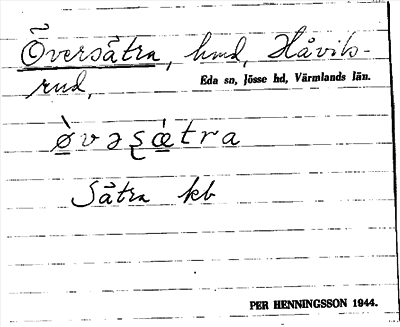 Översätra, hmd, Håvils-
rud, Eda sn, Jösse hd, Värmlands län.
Sätra kb
PER HENNINGSSON 1944.